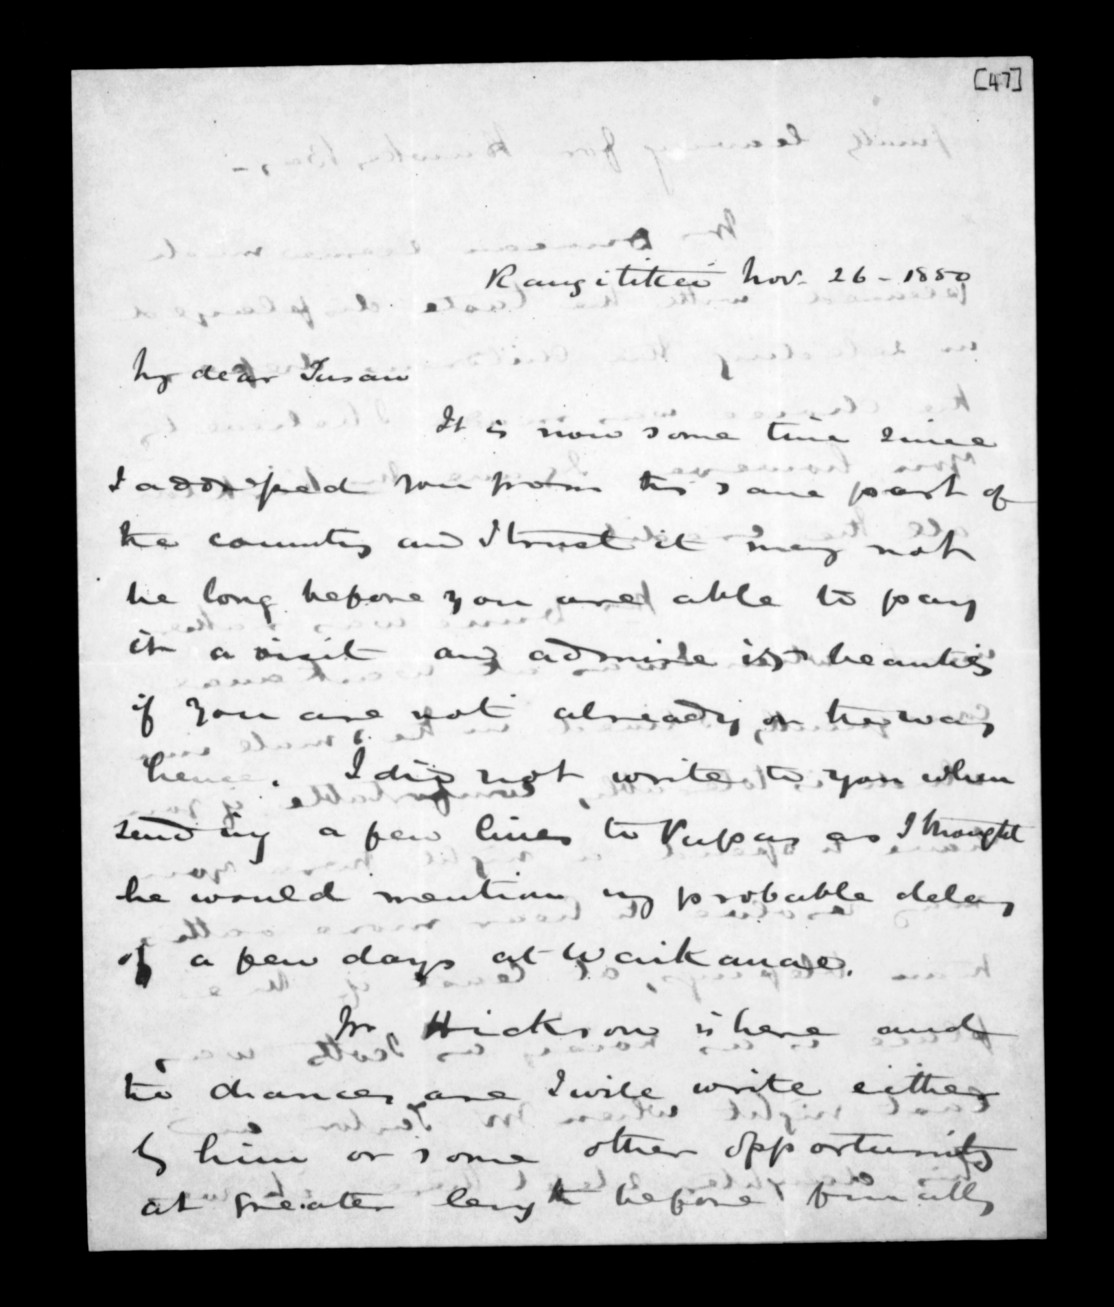 [47]
Rangitikei Nov. 26 - 1850
My dear Susan
It is now some time since
I addressed you from this same part of
the country and I trust it may not
be long before you are able to pay
it a visit and admire its beauties
if you are not already on the way
hence. I did not write to you when
sending a few lines to Papa as I thought
he would mention my probable delay
of a few days at Waikanae.
Mr Hickson is here and
the chances are I will write either
by him or some other opportunity
at greater length before finally